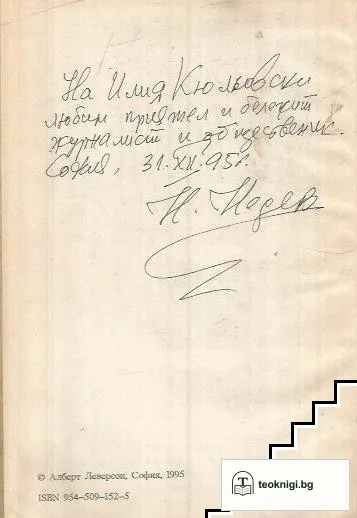 На Илия Кюлювски
любим приятел и бележит
журналист и общественик.
София, 31.XII.95г.
Н. Надев
© Алберт Леверсон, София, 1995
ISBN 954-509-152-5
teoknigi.bg